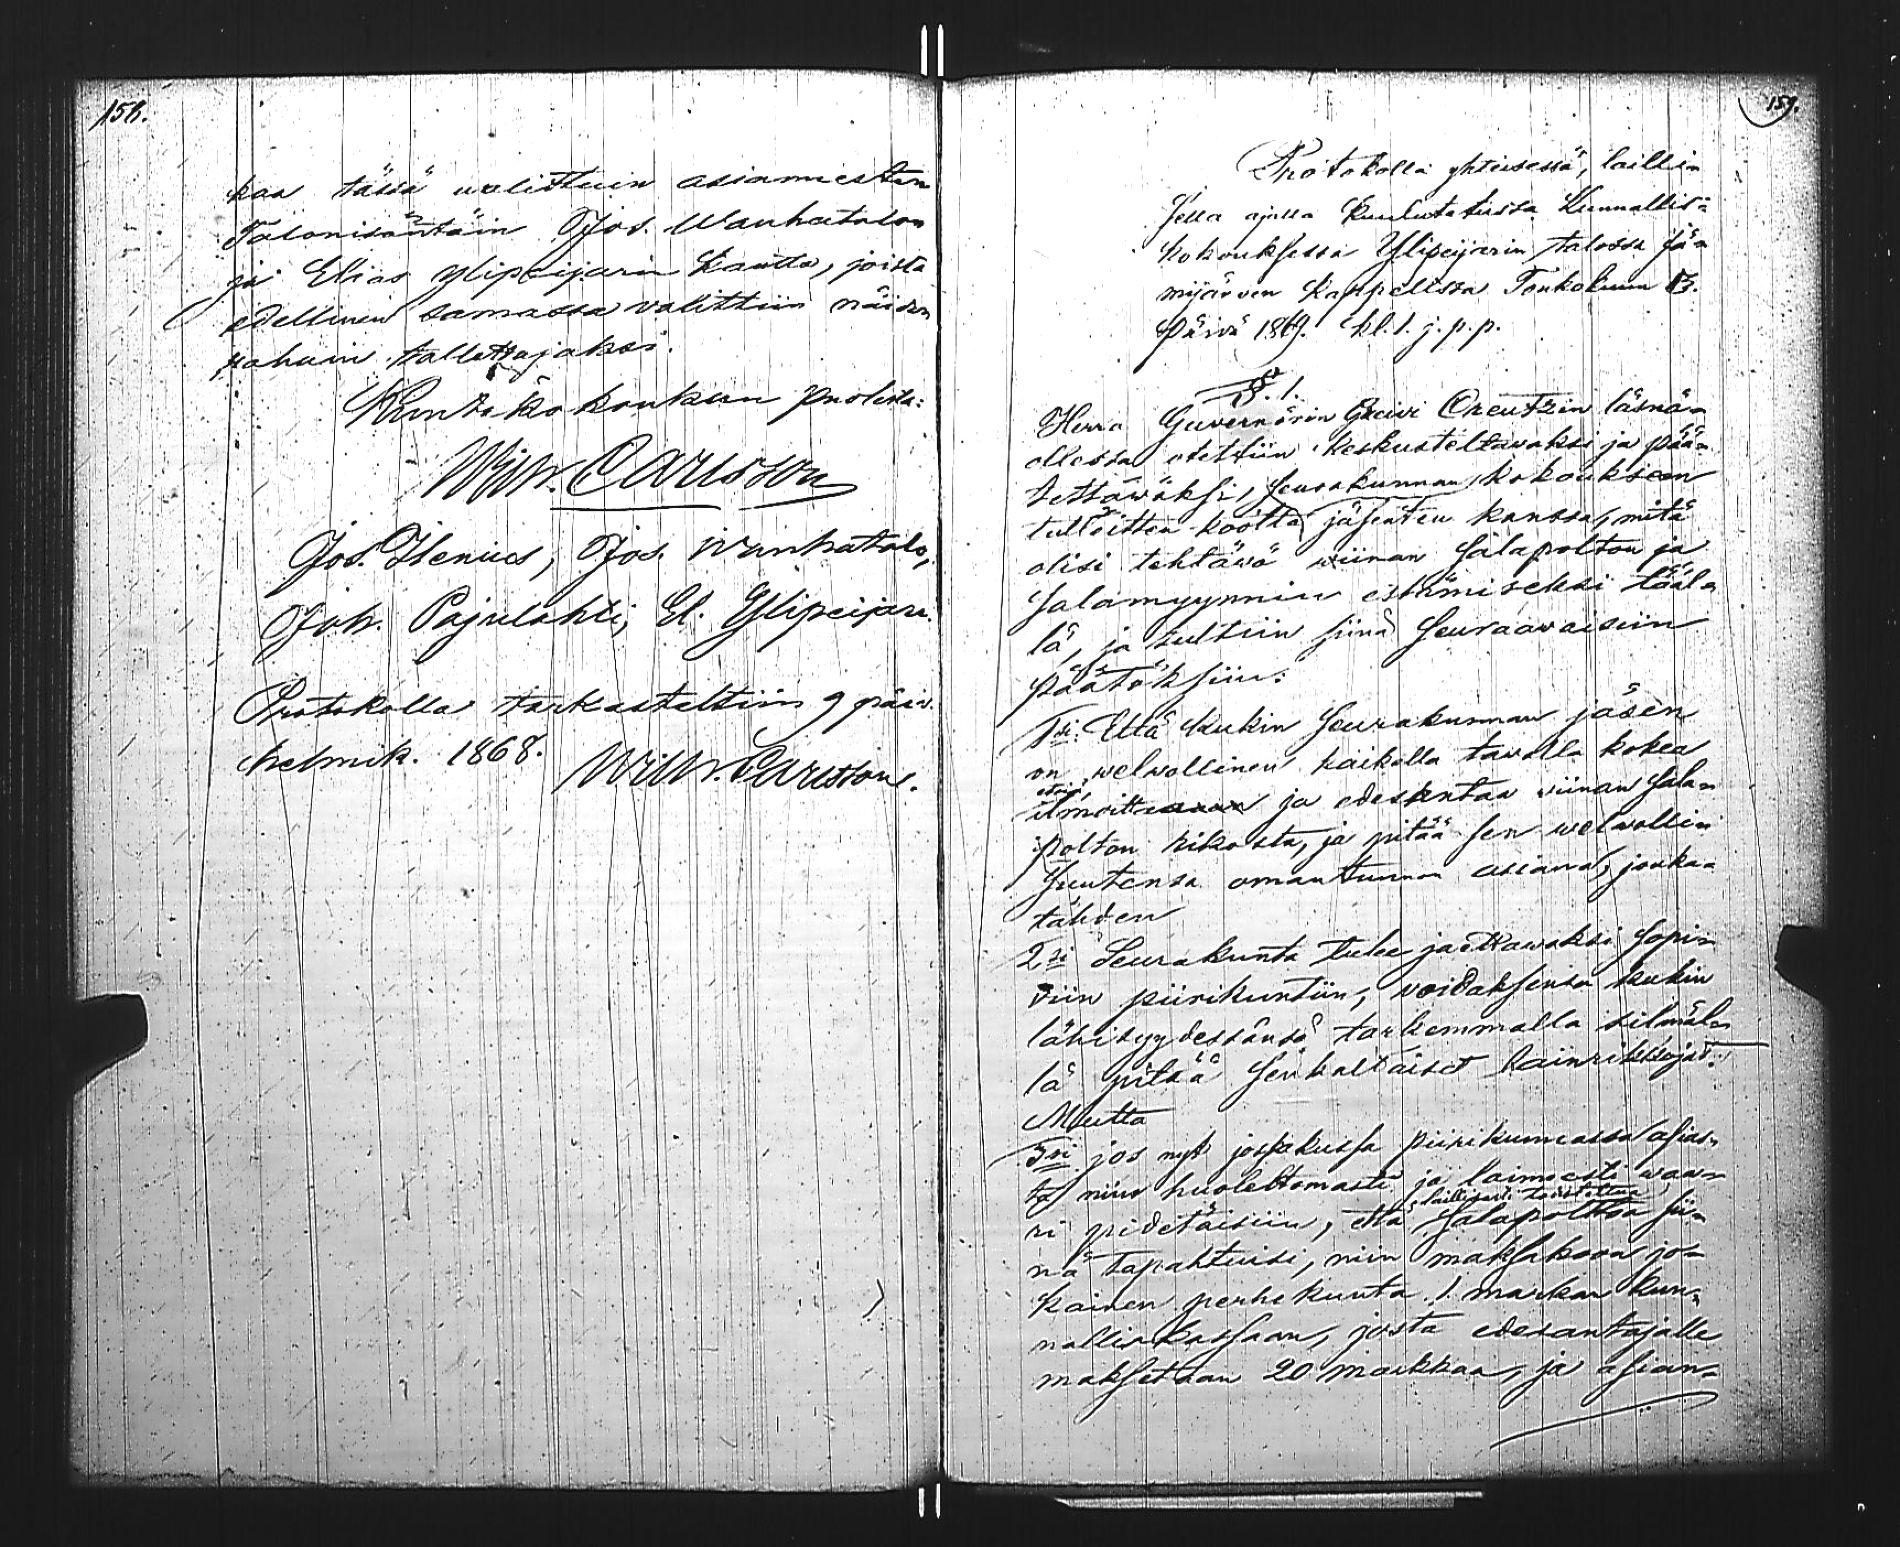 158.
kaa tässä valittuin asiamiesten
Talonisäntäin Jos. Wanhatalon
ja Elias Ylipeijarin kautta, joista
edellinen samassa valittiin näiden
rahain tallettajaksi.
Kuntakokouksen puolesta:
Wilh. Carlsson
Jos. Ilenius, Jos. Wanhatalo,
Joh. Pajulahti, El. Ylipeijari.
Protokolla tarkasteltiin 9 päiv.
helmik. 1868. Wilh. Carlsson.
159.
Protokolla yhteisessä, laillis
sella ajalla kuulutetussa Kunnallis-
kokouksessa Ylipeijarin talossa Jä-
mijärven kappelissa Toukokuun 13.
päivä 1869. kl. 1. j. p. p.
§. 1.
Herra Guvernörin Greivi Creutzin läsnä-
ollessa otettiin keskusteltavaksi ja pää-
tettäwäksi, seurakunnan kokoukseen
tulleitten koolta jäsenten kanssa, mitä
olisi tehtäwä viinan salapolton ja
salamyynnin estämiseksi tääl-
lä, ja tultiin siinä seuraawaisiin
päätöksiin:
1si Että kukin seurakunnan jäsen
on welwollinen kaikella tavalla kokea
etsiä
ilmoittaa ja edesantaa viinan sala-
polton rikosta, ja pitää sen welwollis
suutensa omantunnon asiana, jonka
tähden
2si Seurakunta tulee jaettawaksi sopi-
viin piirikuntiin, voidaksensa kukin
lähisyydessänsä tarkemmalla silmäl-
lä pitää senkaltaiset lainrikkojat.
Mutta
3si jos nyt jossakussa piirikunnassa asias-
ta niin huolettomasti ja laimeasti waa-
ri pidetäisiin, että laillisesti toistettua salapolttoa sii-
nä tapahtuisi, niin maksakoon jo-
kainen perhekunta 1. markan kun-
nalliskassaan, josta edesantajalle
maksetaan 20 markkaa, ja asian-